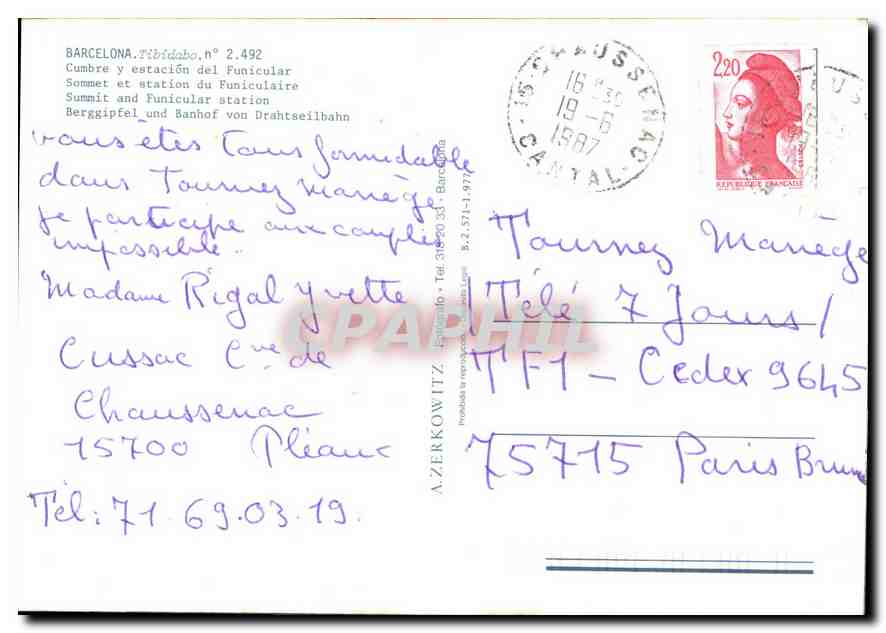 BARCELONA. Tibidabo, n° 2.492
Cumbre y estación del Funicular
Sommet et station du Funiculaire
Summit and Funicular station
Berggipfel und Banhof von Drahtseilbahn
vous êtes tous formidable
dans Tournez manège
je participe aux couples
impossible..
Madame Rigal Yvette
Cussac Cne de
Chaussenac
15700 Pléaux
Tel: 71.69.03.19.
A. ZERKOWITZ Fotógrafo • Tel. 318 20 33 - Barcelona
Prohibida la reproducción Legal B. 2.571-1.977
15 CHAUSSENAC
16 H30
19 -6
1987
CANTAL
2,20
REPUBLIQUE FRANÇAISE
Tournez Manège
Télé 7 Jours/
TF1 - Cedex 9645
75715 Paris Brune
CPAPHIL